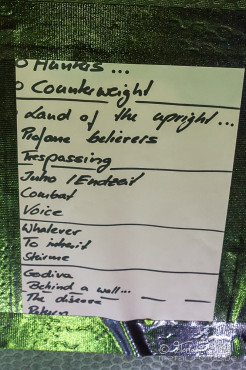 o Hunters ...
o Counterweight
Land of the upright ...
Profane believers
Trespassing
Intro / Endtail
Combat
Voice
Whatever
To inherit
Godiva
Behind a wall...
The disease
Return